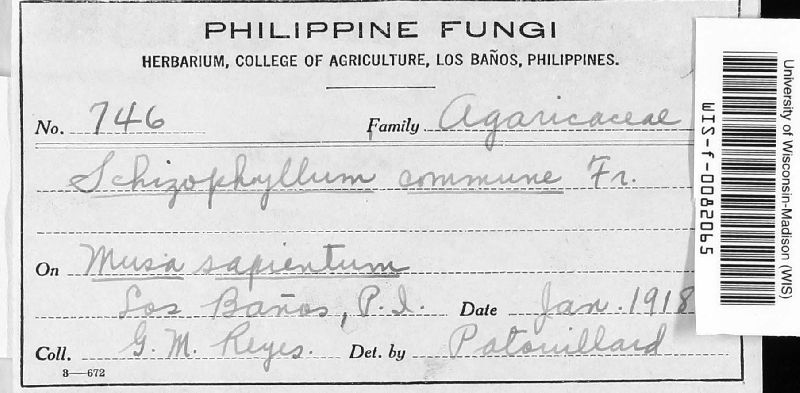 PHILIPPINE FUNGI
HERBARIUM, COLLEGE OF AGRICULTURE, LOS BAÑOS, PHILIPPINES.
No. 746 Family Agaricaceae
Schizophyllum commune Fr.
On Musa sapientum
Los Baños, P.I. Date Jan. 1918
Coll. G. M. Reyes. Det. by Patouillard
8—672
University of Wisconsin-Madison (WIS)
WIS-f-0082065